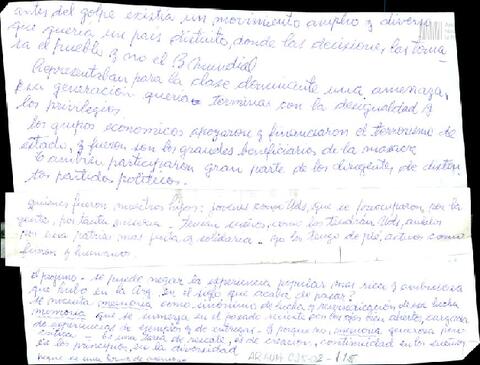 antes del golpe existía un movimiento amplio y diverso
que quería un país distinto, donde las decisiones las toma
ra el pueblo y no el B. Mundial
Representaban para la clase dominante una amenaza,
esa generación quería terminar con la desigualdad y
los privilegios.
Los grupos económicos apoyaron y financiaron el terrorismo de
estado, y fueron son los grandes beneficiarios de la masacre
También participaron gran parte de los dirigentes de distin
tos partidos políticos.
quiénes fueron nuestros hijos: jóvenes como Uds, que se preocuparon por la
gente, por tanta miseria - tenían sueños, como los tendrán Uds,
por una patria mas justa y solidaria -
y humanos
se puede negar la experiencia popular mas rica y ambiciosa
que hubo en la Arg. en el siglo que acaba de pasar?
se necesita memoria como sinónimo de lucha y reivindicación de esa lucha
memoria que se sumerja en el pasado reciente con los ojos bien abiertos, cargada
de experiencias de ejemplos y de entrega - y porque no, memoria generosa pero
crítica - es una tarea de rescate, es de creación, continuidad en los sueños
en los principios, en la diversidad